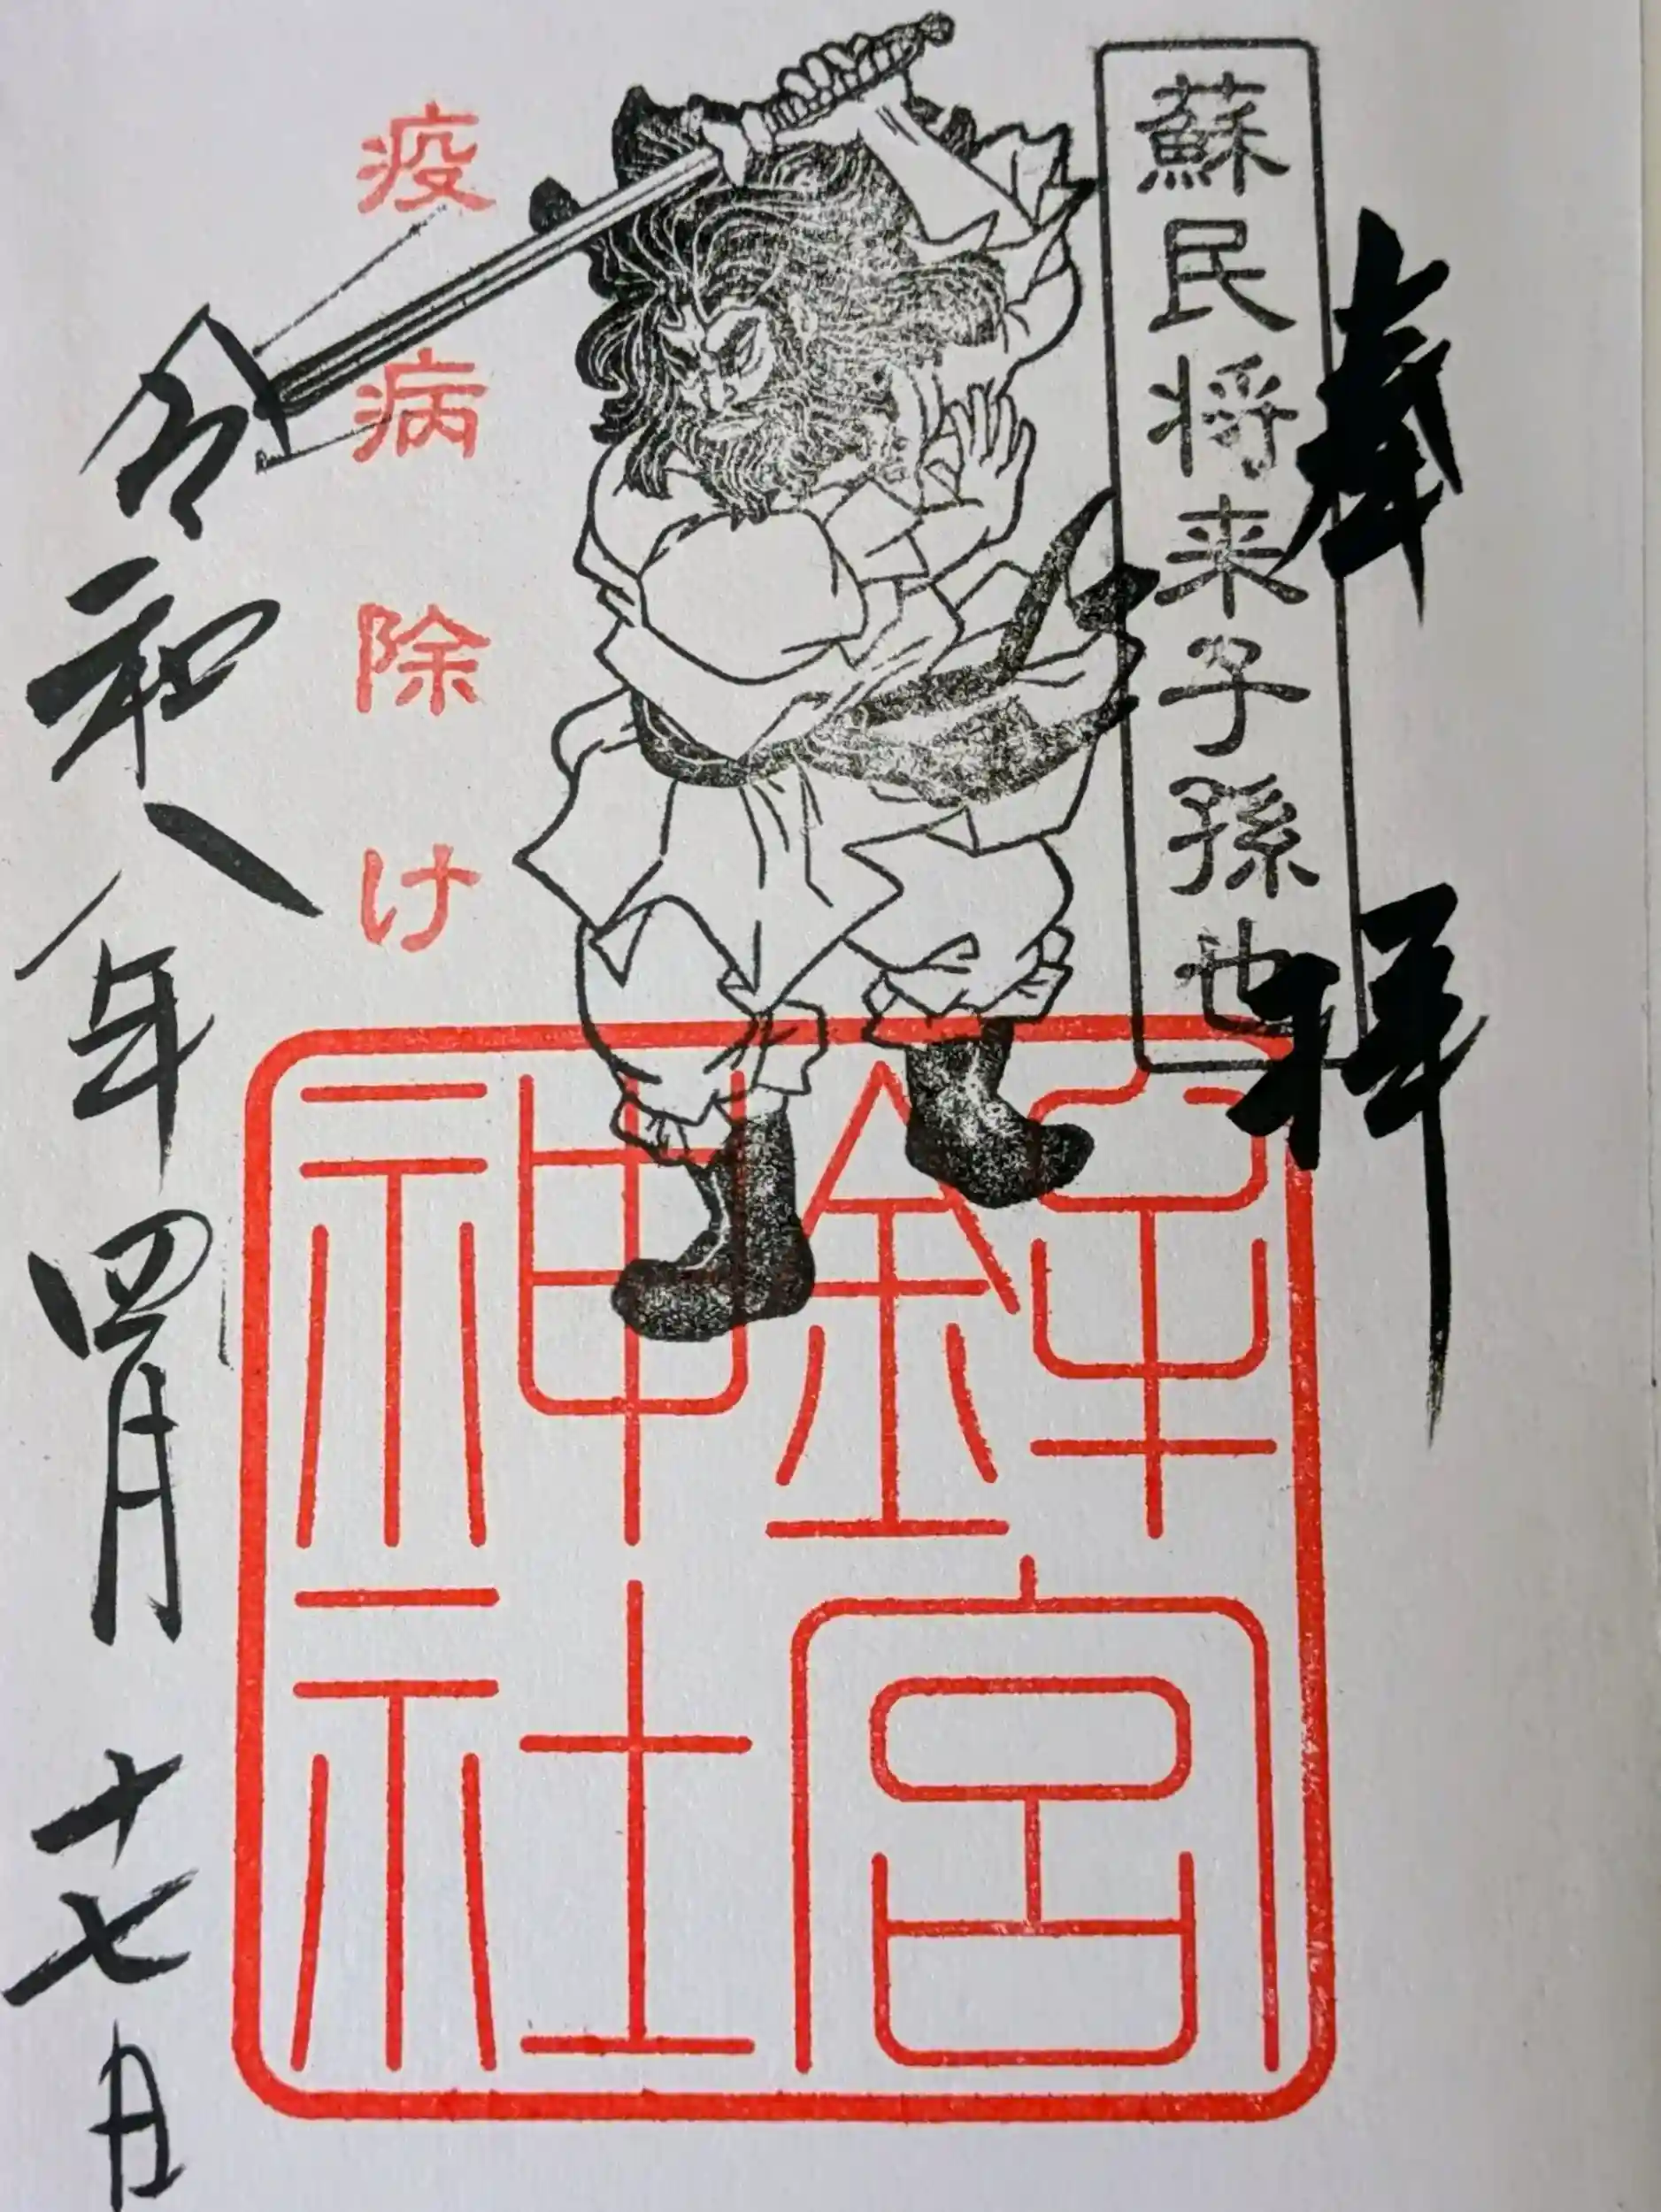 奉拝
蘇民将来子孫也
疫病除け
鉾宮
神社
令和八年四月十七日